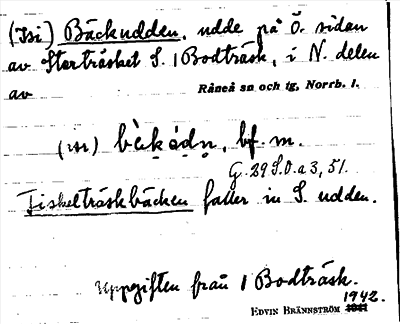 (Isi) Bäckudden, udde på Ö. sidan
av Storträsket S. 1 Bodträsk, i N. delen
av Råneå sn och tg, Norrb. l.
bf. m.
G. 29 S.O. a 3, 51.
Fiskelträskbäcken faller in S. udden.
Uppgiften från 1 Bodträsk.
1942.
EDVIN BRÄNNSTRÖM